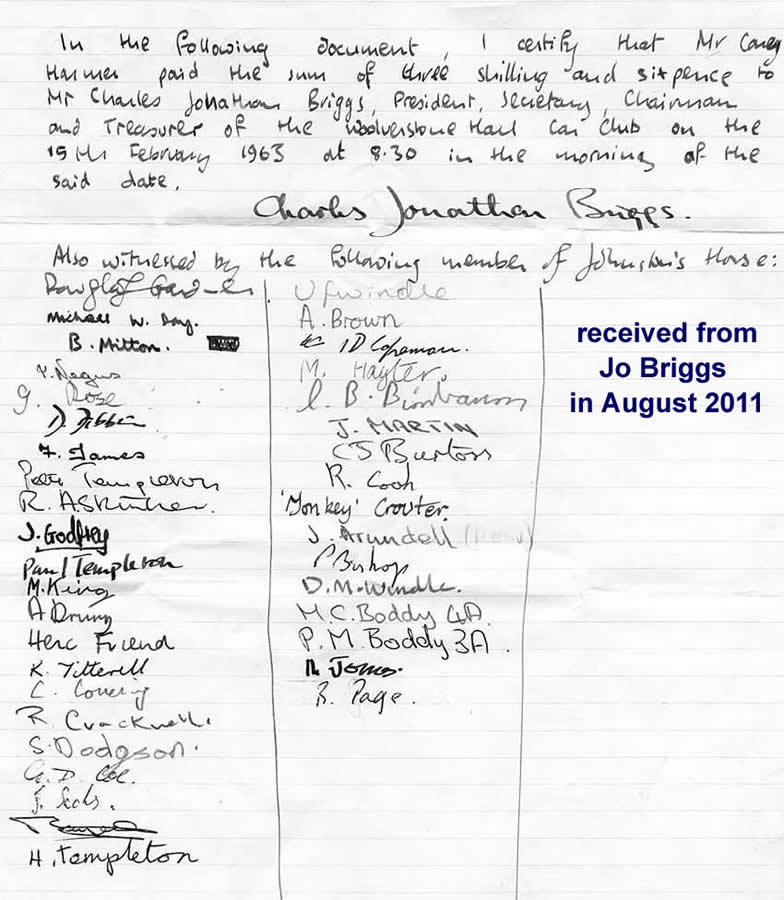 In the following document, I certify that Mr Carey
Harmer paid the sum of three shilling and sixpence to
Mr Charles Jonathan Briggs, President, Secretary, Chairman
and Treasurer of the Woolverstone Hall Car Club on the
15th February 1963 at 8.30 in the morning of the
said date.
Charles Jonathan Briggs.
Also witnessed by the following member of Johnston's House:
Michael W. Day.
B. Mitton.
P. Negus
G. Rose
D. Gibben
F. James
Pete Templeton
R. Askwhen.
J. Godfrey
Paul Templeton
M. King
A Drury
Herc Friend
K. Titterell
C. Covering
R. Cracknell.
S. Dodgson.
G. D. Coe.
H. Templeton
A. Brown
I D Copeman.
M. Hayter.
J. MARTIN
C J Burton
R. Cook
'Monkey' Crouter.
J. Arundell
P Bishop
D. M. Windle.
M. C. Boddy 4A
P. M. Boddy 3A.
R. Jones.
R. Page.
received from
Jo Briggs
in August 2011